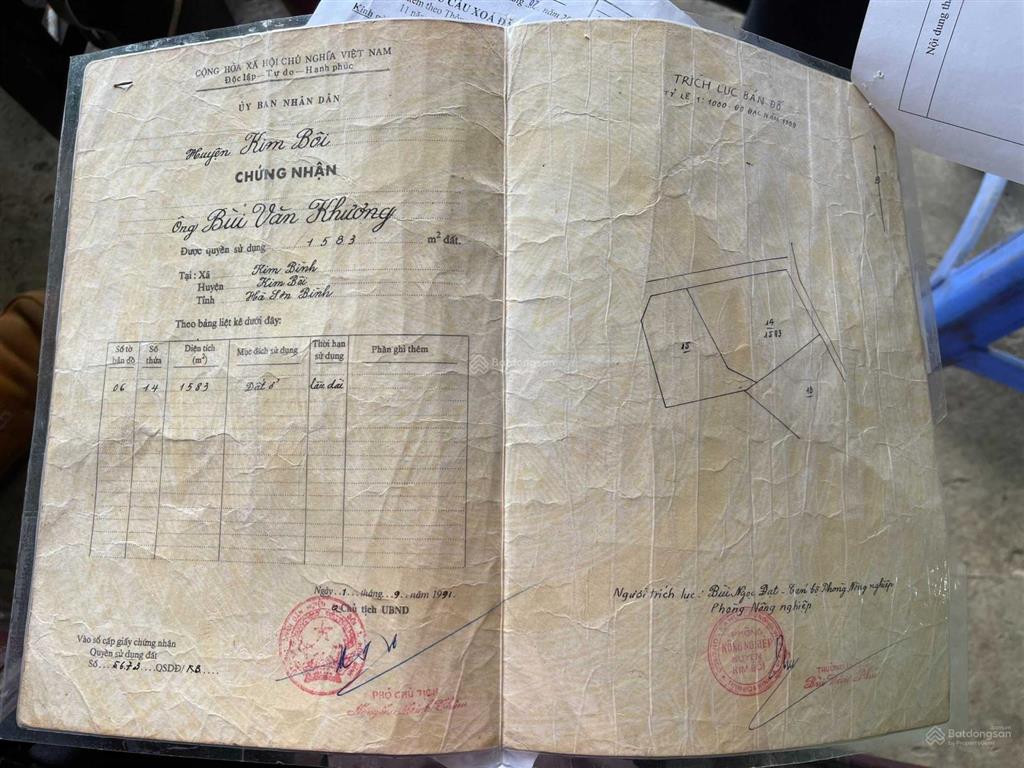 CỘNG HÒA XÃ HỘI CHỦ NGHĨA VIỆT NAM
Độc lập - Tự do - Hạnh phúc
ỦY BAN NHÂN DÂN
Huyện Kim Bôi
CHỨNG NHẬN
Ông Bùi Văn Khương
Được quyền sử dụng 1583 m² đất.
Tại: Xã Kim Bình
Huyện Kim Bôi
Tỉnh Hà Sơn Bình
Theo bảng liệt kê dưới đây:
Số tờ bản đồ Số thửa Diện tích (m²) Mục đích sử dụng Thời hạn sử dụng Phần ghi thêm
06 14 1583 Đất ở lâu dài
Ngày 1 tháng 9 năm 1991
Chủ tịch UBND
Vào sổ cấp giấy chứng nhận
Quyền sử dụng đất
QSDĐ/KB
PHÓ CHỦ TỊCH
TRÍCH LỤC BẢN ĐỒ
TỶ LỆ 1:1000
B
15
14
1583
Người trích lục: Bùi Ngọc Đạt - Cán bộ Phòng Nông nghiệp
Phòng Nông nghiệp
PHÒNG
NÔNG NGHIỆP
HUYỆN
KIM BÔI
Nội dung
Batdongsan
by PropertyGuru